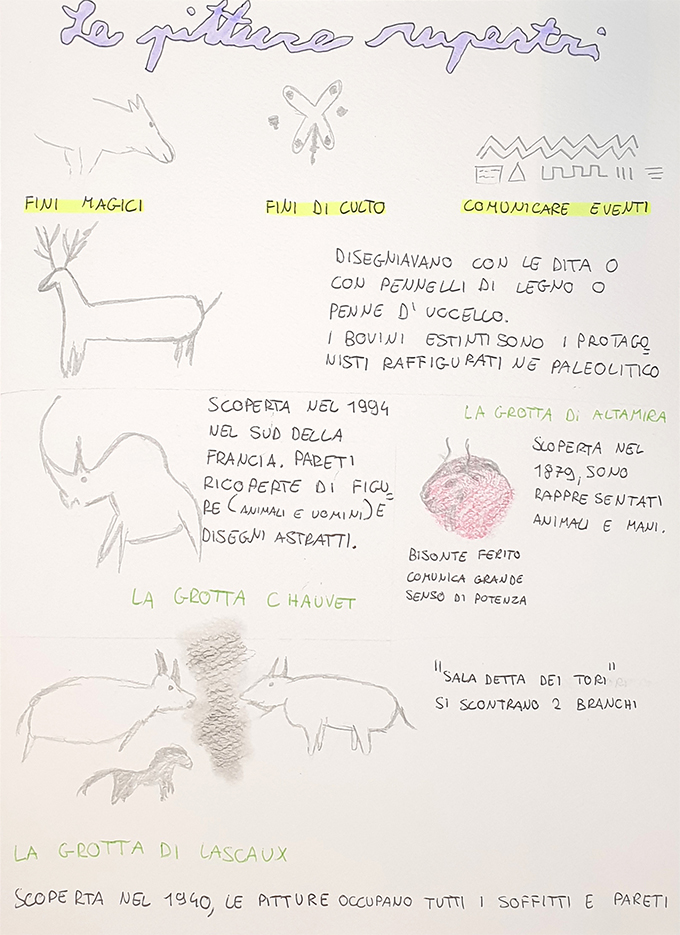 Le pitture rupestri
FINI MAGICI
FINI DI CULTO
COMUNICARE EVENTI
DISEGNIAVANO CON LE DITA O
CON PENNELLI DI LEGNO O
PENNE D'UCCELLO.
I BOVINI ESTINTI SONO I PROTAGO
NISTI RAFFIGURATI NE PALEOLITICO
SCOPERTA NEL 1994
NEL SUD DELLA
FRANCIA. PARETI
RICOPERTE DI FIGU
RE (ANIMALI E UOMINI) E
DISEGNI ASTRATTI.
LA GROTTA CHAUVET
LA GROTTA DI ALTAMIRA
SCOPERTA NEL
1879, SONO
RAPPRESENTATI
ANIMALI E MANI.
BISONTE FERITO
COMUNICA GRANDE
SENSO DI POTENZA
"SALA DETTA DEI TORI"
SI SCONTRANO 2 BRANCHI
LA GROTTA DI LASCAUX
SCOPERTA NEL 1940, LE PITTURE OCCUPANO TUTTI I SOFFITTI E PARETI